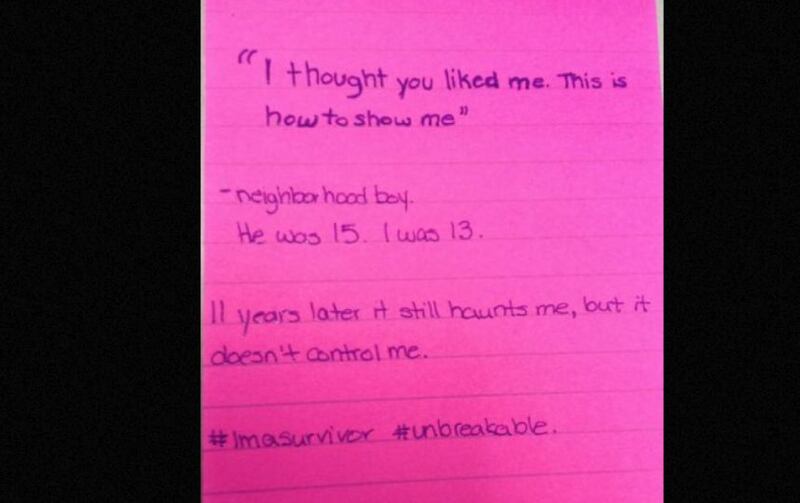 "I thought you liked me. This is
how to show me"
- neighborhood boy.
He was 15. I was 13.
11 years later it still haunts me, but it
doesn't control me.
#Imasurvivor #unbreakable.